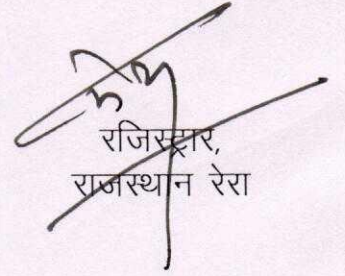 रजिस्ट्रार,
राजस्थान रेरा